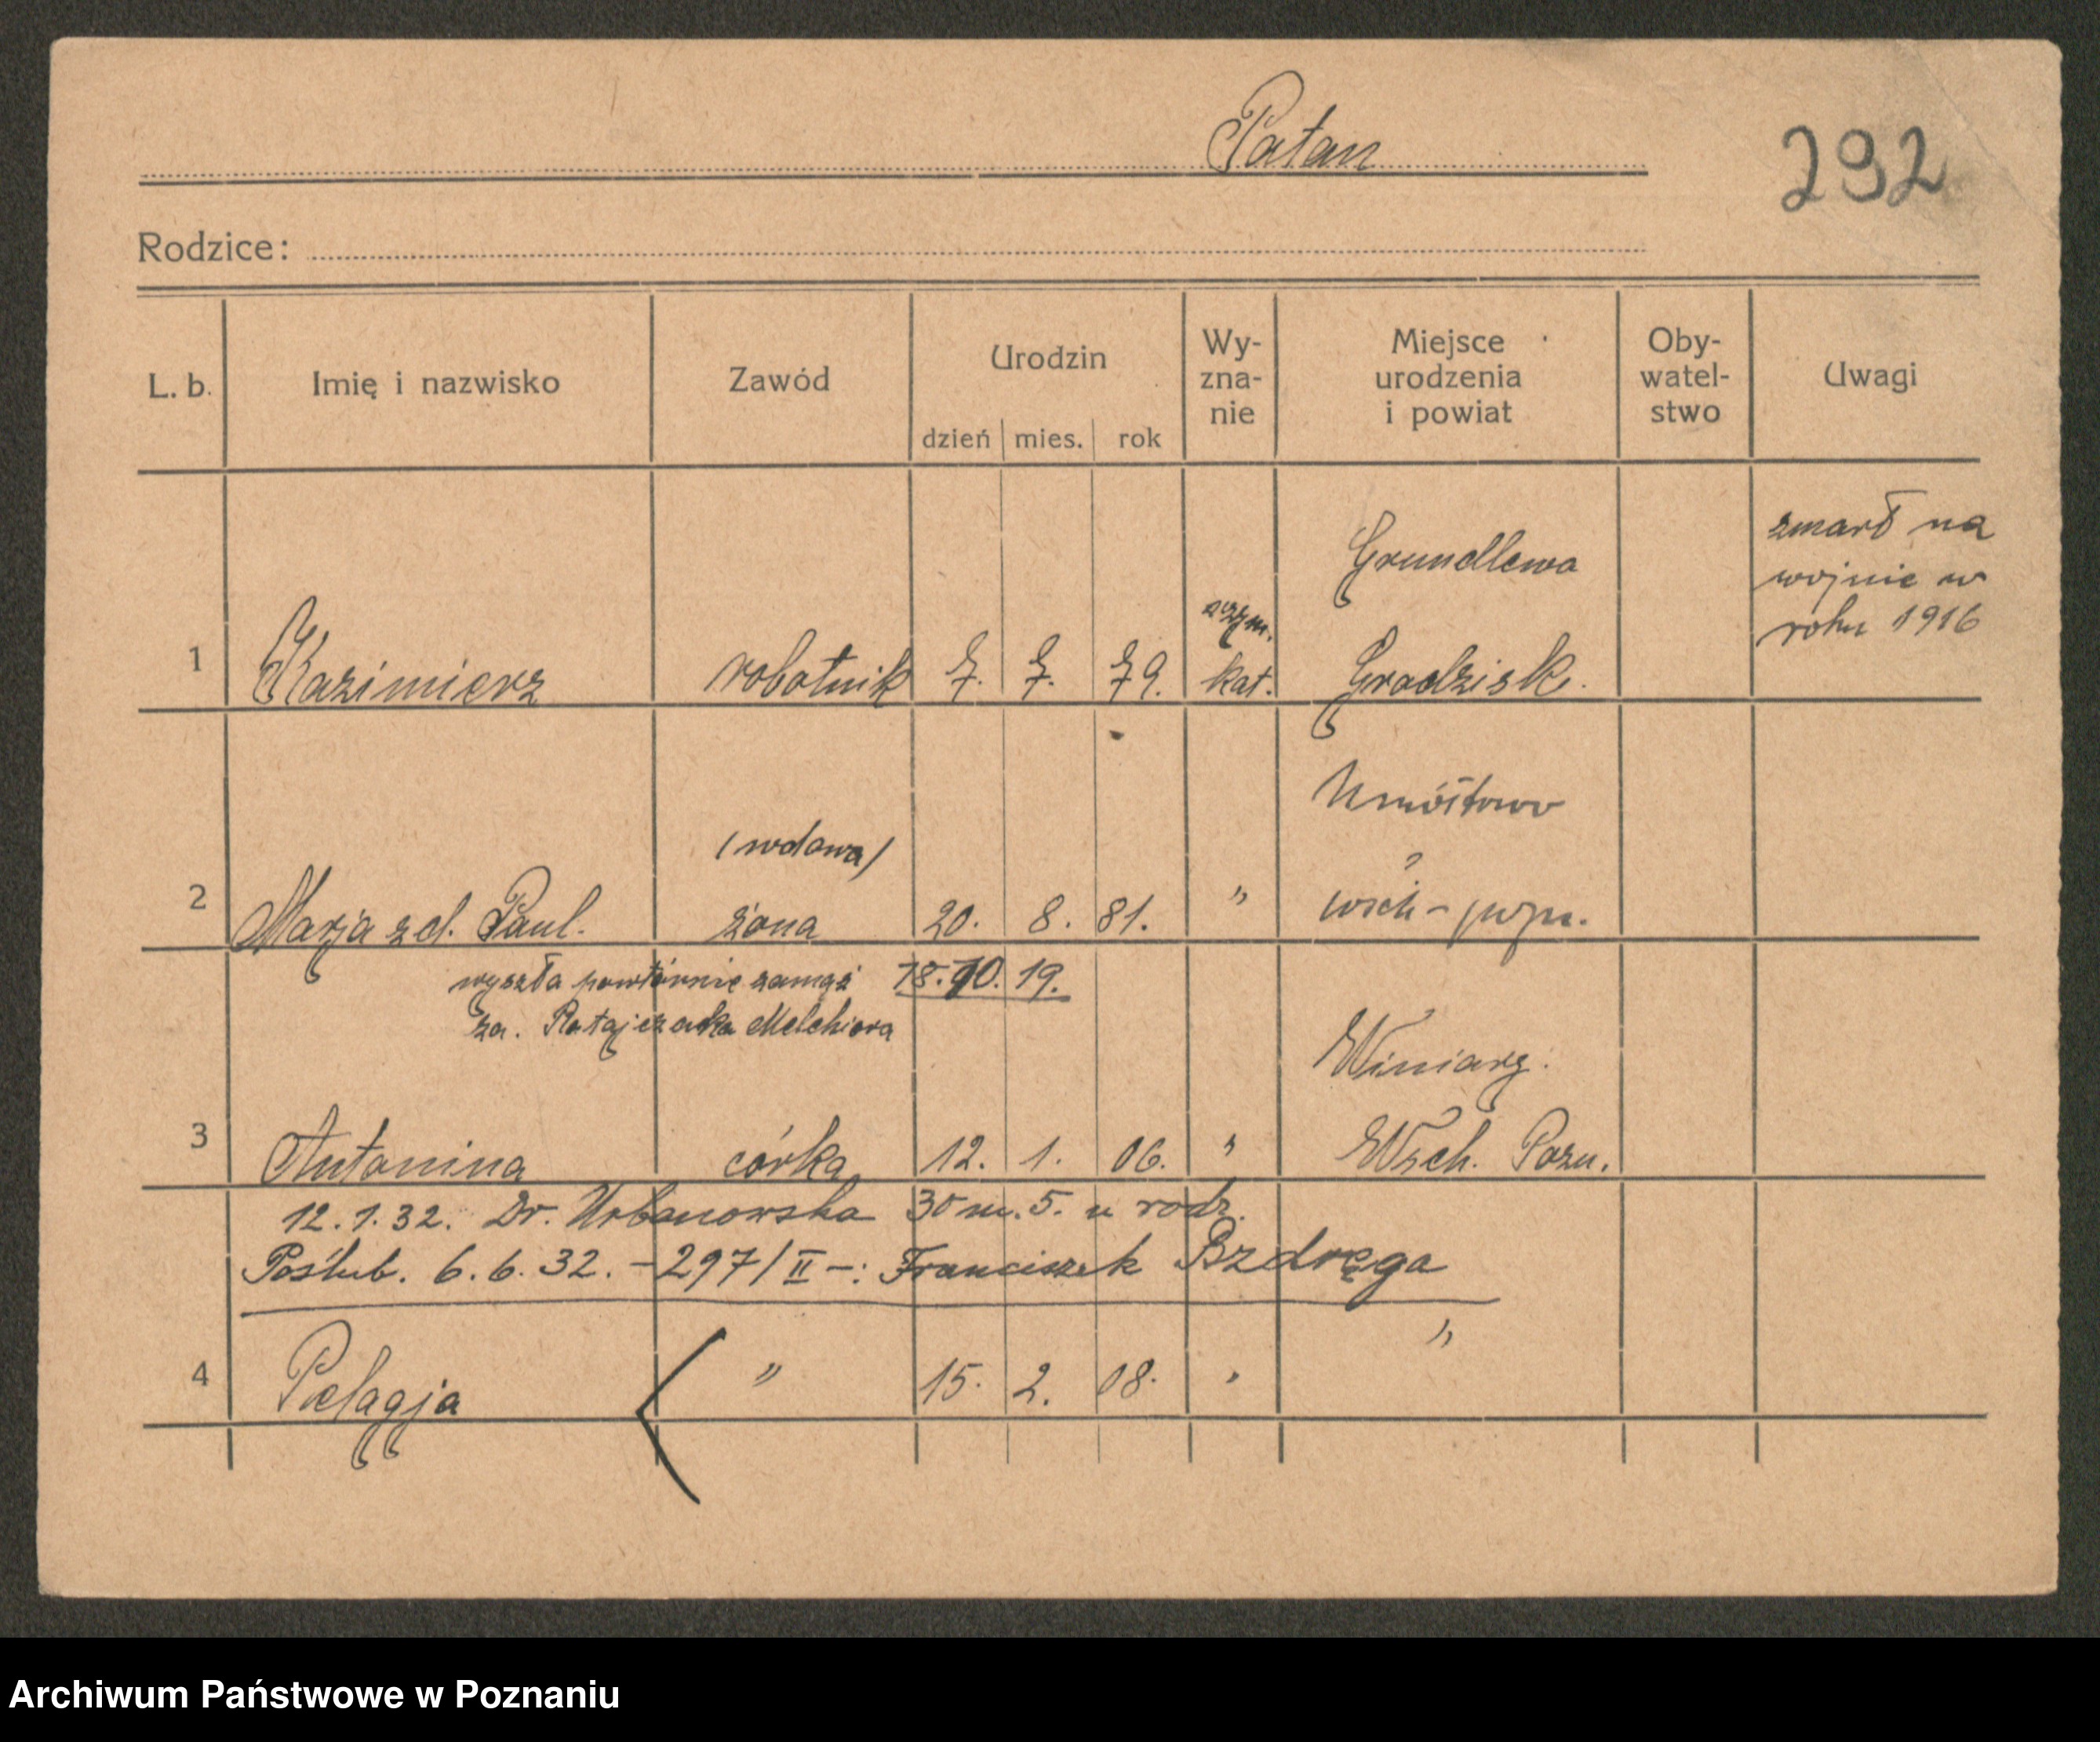 Patan
292
Rodzice:
L. b. Imię i nazwisko Zawód Urodzin dzień mies. rok Wy-zna-nie Miejsce urodzenia i powiat Oby-watel-stwo Uwagi
zmarł na
wojnie w
roku 1916
Grundlewa
rzym.
1 Kazimierz robotnik 7. 7. 79. kat. Grodzisk.
(wdowa)
2 Marja z d. Paul. żona 20. 8. 81. " wsch-pozn.
wyszła powtórnie zamąż 18.10.19.
za. Ratajczaka Melchiora
Winiary.
3 Antonina córka 12. 1. 06. " Wsch. Pozn.
12.1.32. Dr. Urbanowska 30 m. 5. u rodz.
Poślub. 6.6.32. - 297/II -: Franciszek Bzdręga
4 Pelagja " 15. 2. 08. " "
Archiwum Państwowe w Poznaniu